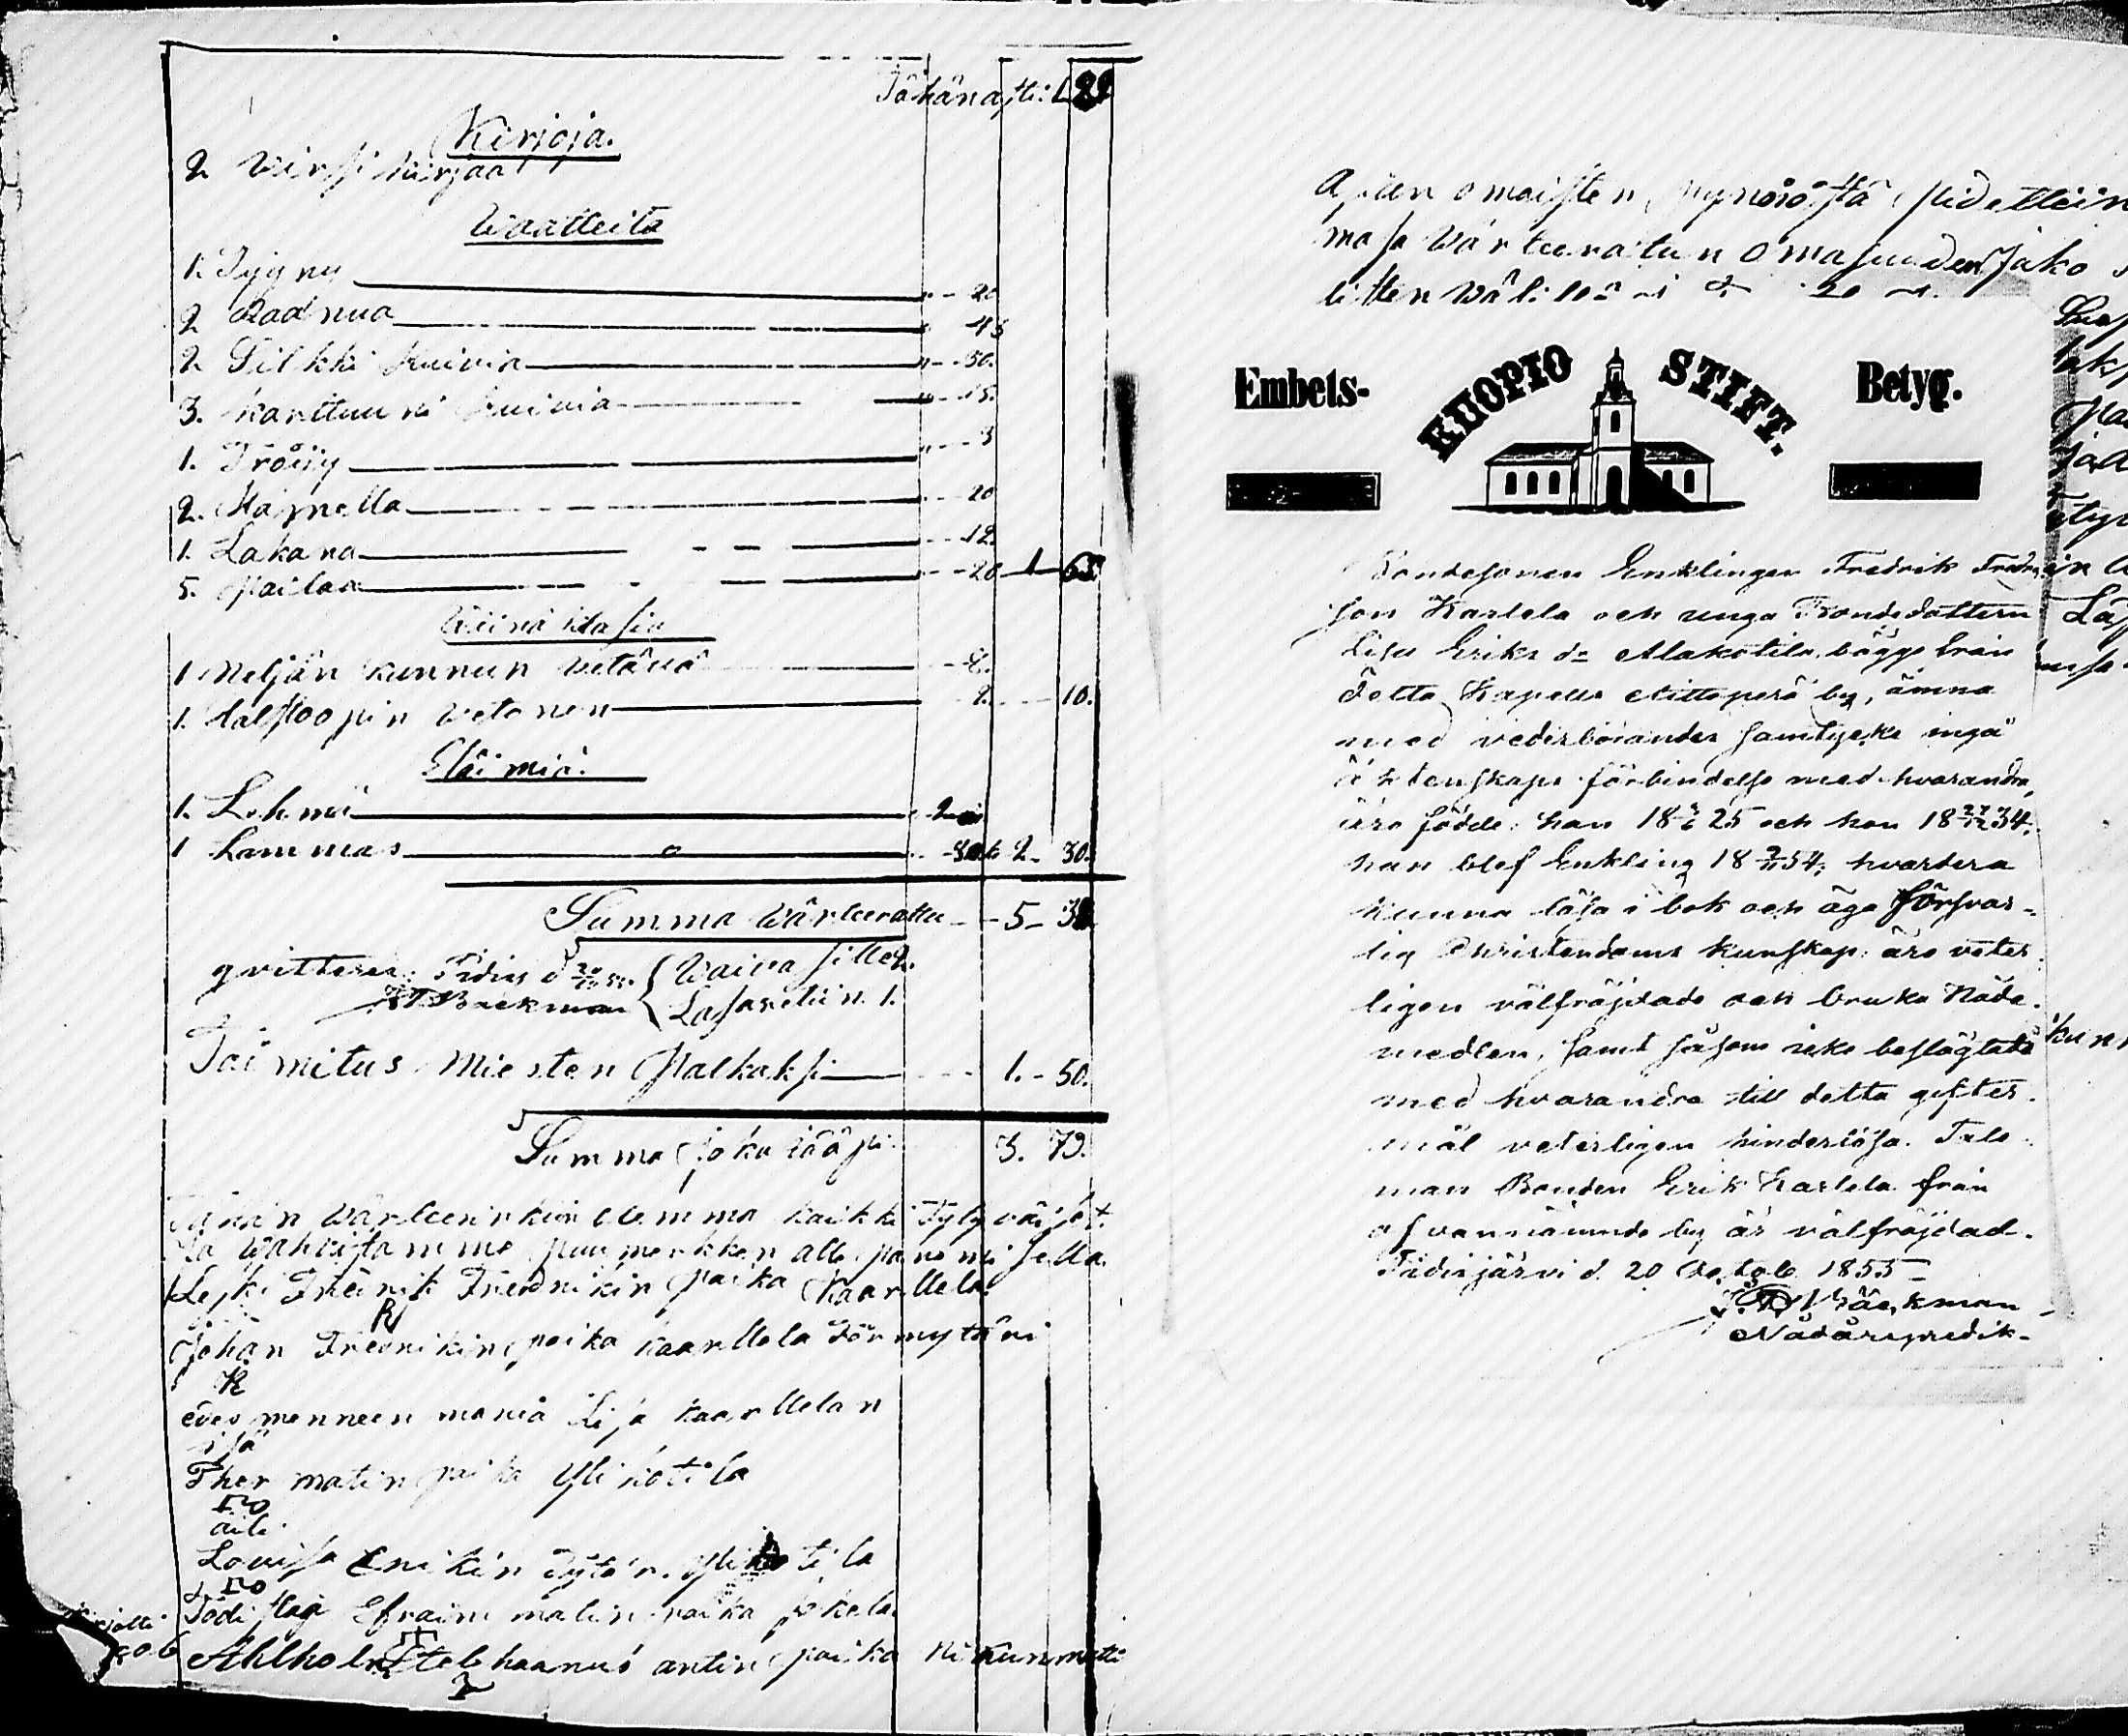 Kirjoja.
2 Virsi kirjaa
Waatteita
1. Tyyny 20
2 Raanua 45
2 Silkki huivia 50.
3. karttuuni huivia 15.
1. Tröijy 3
2. Hametta 20
1. Lakana 12.
5. Paitaa 20 1 65
1 Neljän kunnun vetävä 2.
1. Halstoopin vetonen 2. 10.
Eläimiä.
1. Lehmä 2
1 Lammas 30 k 2. 30.
Summa Wärteerattu 5 38
qvitteras: Pidis d 20/10 55. Waivasille 2.
Bäckman Lasaretiin 1.
Toimitus Miesten Palkaksi 1. 50.
Summa joka jääpi 3. 79.
Wärteerinkiin olemma kaikki
Ja wahvistamme puumerkken alle panemisella
Leski Fredrik Fredrikin poika Kaarllela
Johan Fredrikin poika kaarllela Förmyntäri
R
edes menneen Lisa kaarllelan
isä
Ther matin poika Ylikotila
äiti
Lovissa Erikin Tytär. Ylikotila
Tödistaa Efraim matin poika jokela
Ahlholm antin poika
omaisten pyynöstä pidettiin
masa Wärteeratun omasuuden Jako
litten Wälillä
Embets- KUOPIO STIFT. Betyg.
Bondesonen Enklingen Fredrik Fredriks
son Karlela och unga Bondedottern
Lisa Eriks dr Alakotila, bägge från
detta Kapells by, ämna
med vederbörandes samtycke ingå
äktenskaps förbindelse med hvarandra,
äro födde: han 18 25 och hon 18 27/12 34;
han blef Enkling 18 54; hvardera
kunna läsa i bok och äga försvar-
lig Christendoms kunskap: äro veter-
ligen välfräjdade och bruka Nåde-
medlen, samt såsom icke beslägtade
med hvarandra till detta gifter-
mål veterligen hinderlösa. Tale-
man Bonden Erik Karlela från
ofvannämnde by är välfräjdad.
Pidisjärvi d. 20 Octob. 1855
Bäckman
Nådårspredik-